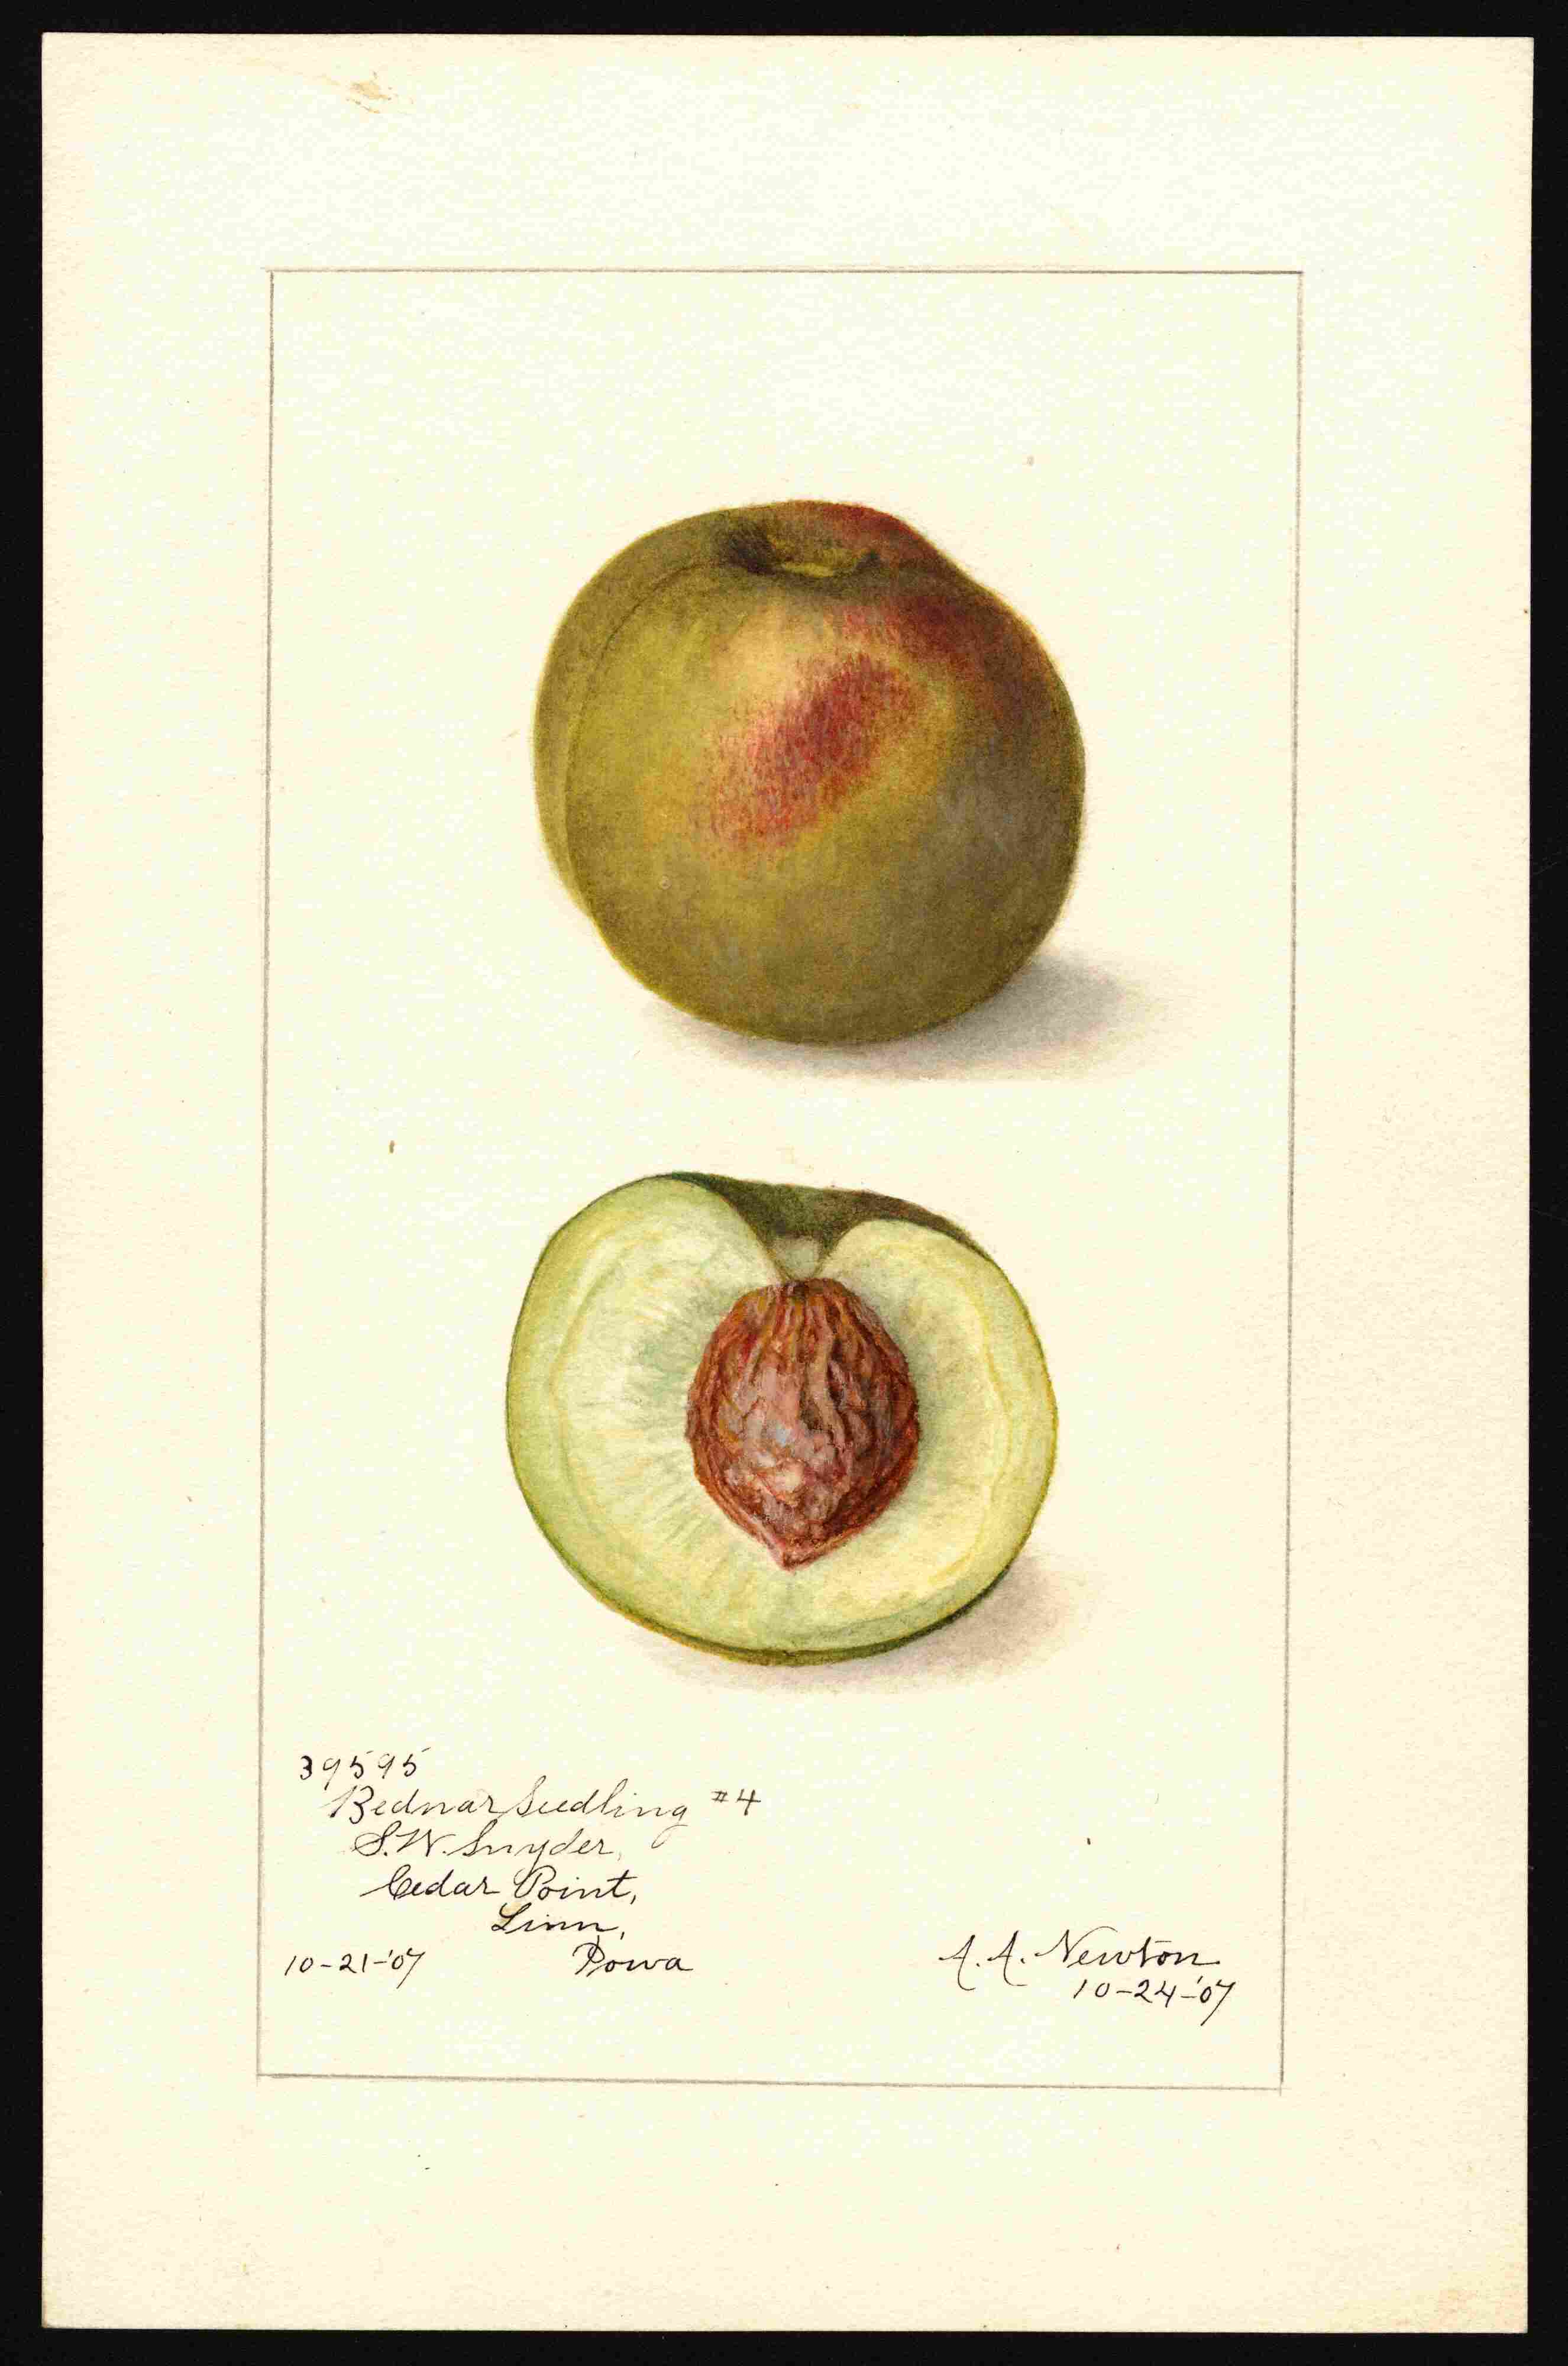 39595
Bednar Seedling #4
S. W. Snyder,
Cedar Point,
Linn,
10-21-'07 Iowa
A. A. Newton
10-24-'07